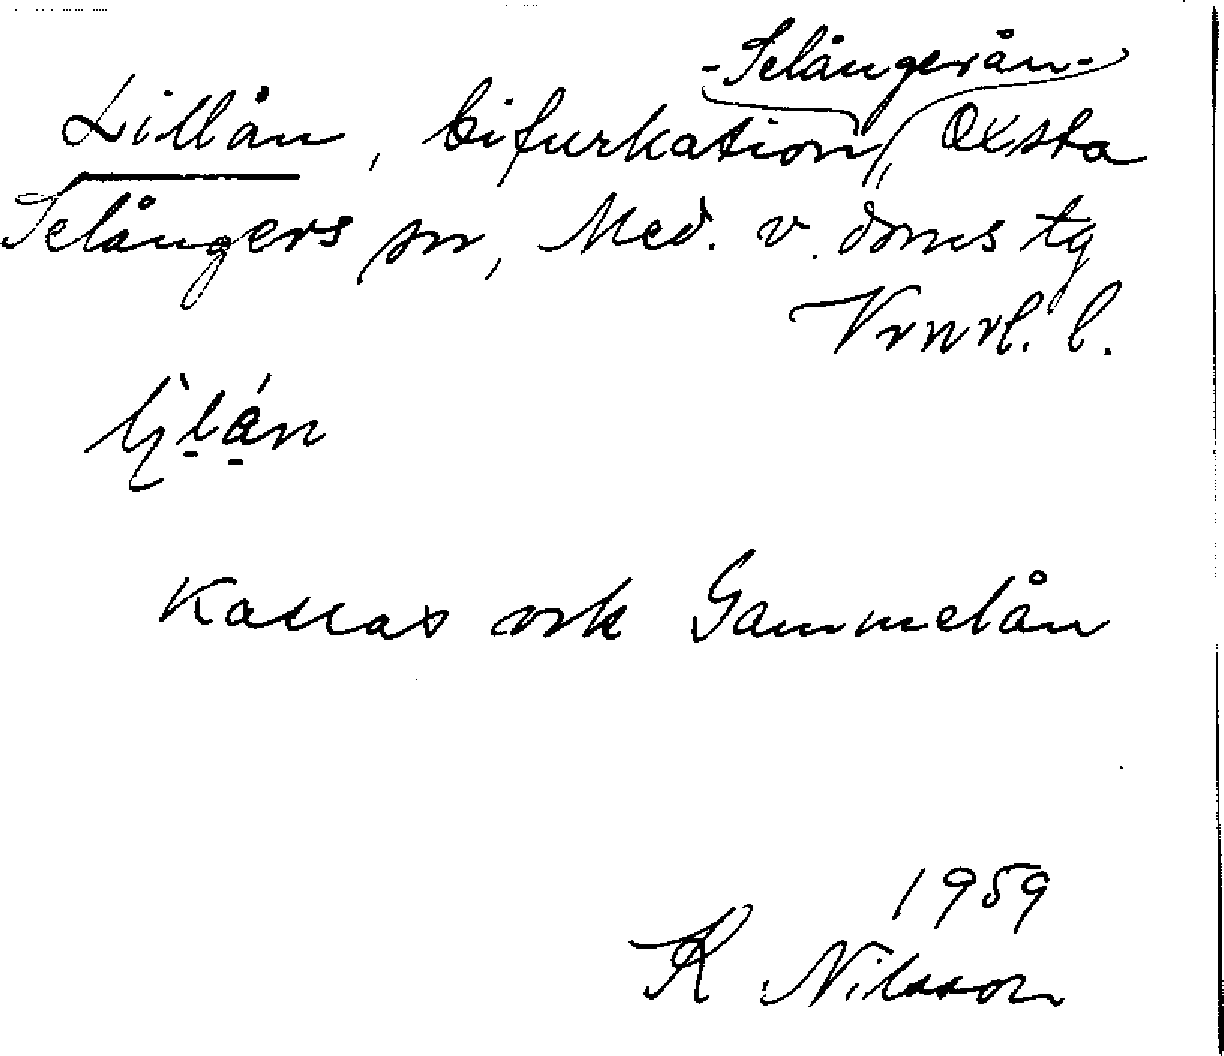 -Selångerån-
Lillån, bifurkation, Oxsta
Selångers sn, Med. v. doms tg
Vrnrl. l.
Kallas ock Gammelån
1959
K Nilsson